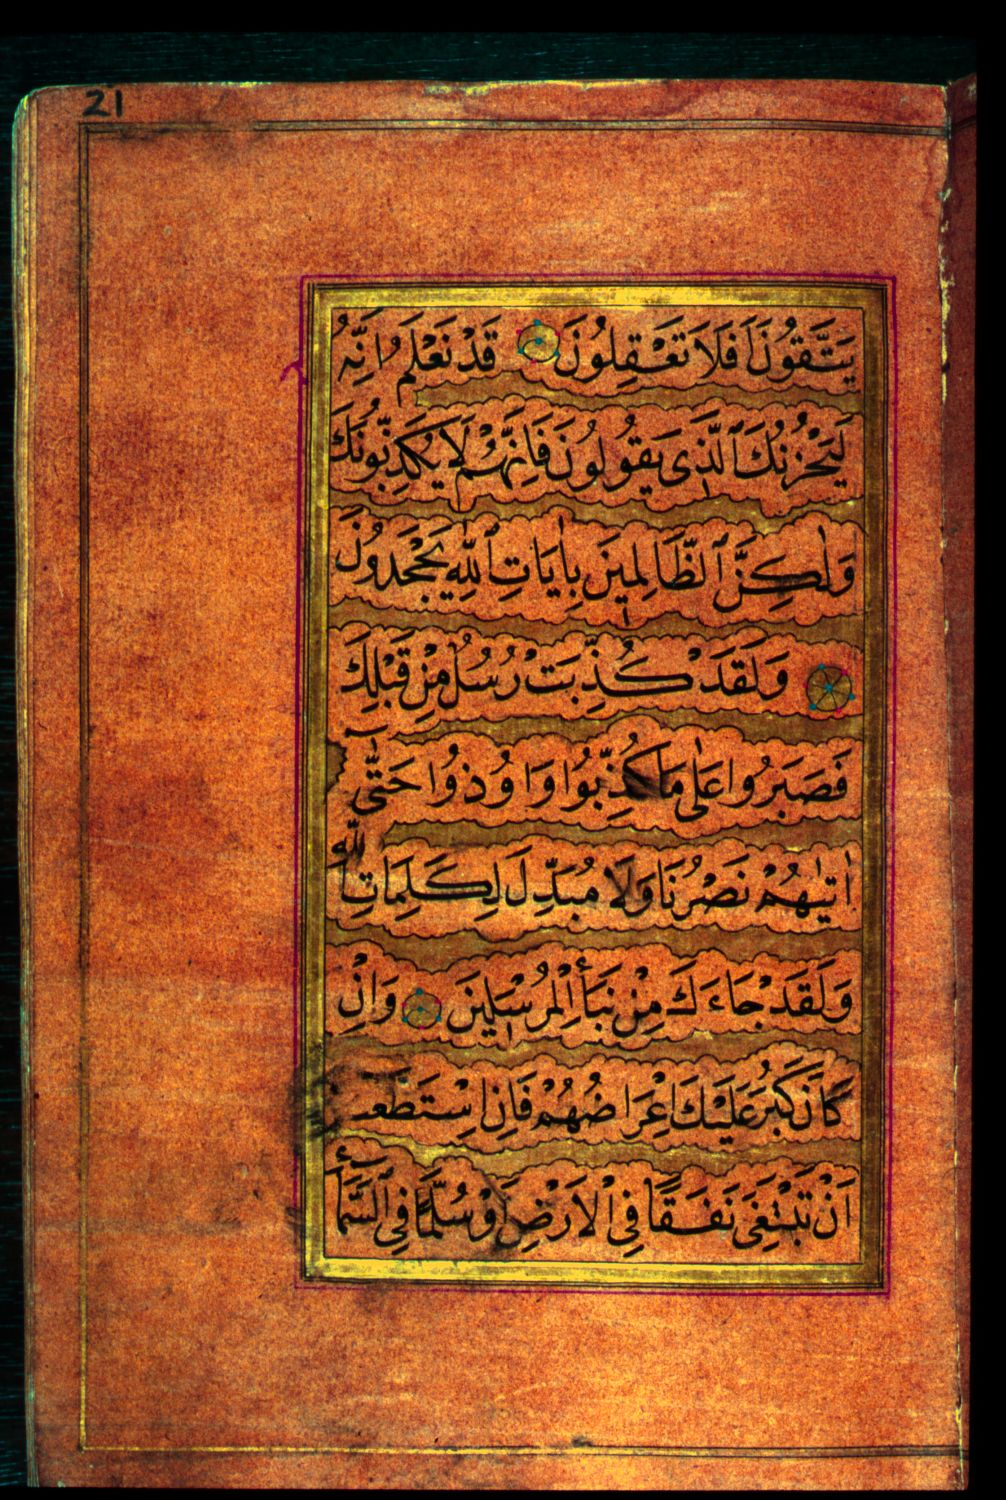 21
يَتَّقُونَ اَفَلَا تَعْقِلُونَ قَدْ نَعْلَمُ اِنَّهُ
لَيَحْزُنُكَ ٱلَّذِى يَقُولُونَ فَاِنَّهُمْ لَا يُكَذِّبُونَكَ
وَلٰكِنَّ ٱلظَّالِمِينَ بِاٰيَاتِ ٱللّٰهِ يَجْحَدُونَ
وَلَقَدْ كُذِّبَتْ رُسُلٌ مِنْ قَبْلِكَ
فَصَبَرُوا عَلٰى مَا كُذِّبُوا وَاُوذُوا حَتّٰٓى
اَتٰيهُمْ نَصْرُنَا وَلَا مُبَدِّلَ لِكَلِمَاتِ اللّٰه
وَلَقَدْ جَاءَكَ مِنْ نَبَأِ الْمُرْسَلِينَ وَاِنْ
كَانَ كَبُرَ عَلَيْكَ اِعْرَاضُهُمْ فَاِنِ اسْتَطَعْتَ
اَنْ تَبْتَغِىَ نَفَقًا فِى الْاَرْضِ اَوْ سُلَّمًا فِى ٱلسَّمَٓأ